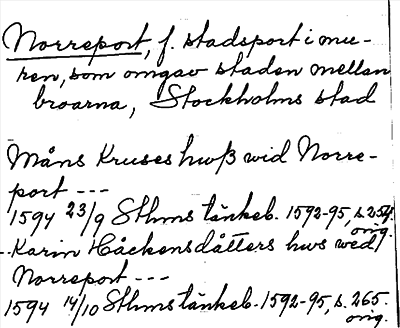 Norreport, f. stadsport i mu-
ren, som omgav staden mellan
broarna, Stockholms stad
Måns Kruses hwß wid Norre-
port ---
1594 23/9 Sthms tänkeb. 1592-95, s. 254.
orig.
Karin Håckensdåtters hws wed
Norreport ---
1594 14/10 Sthms tänkeb. 1592-95, s. 265.
orig.